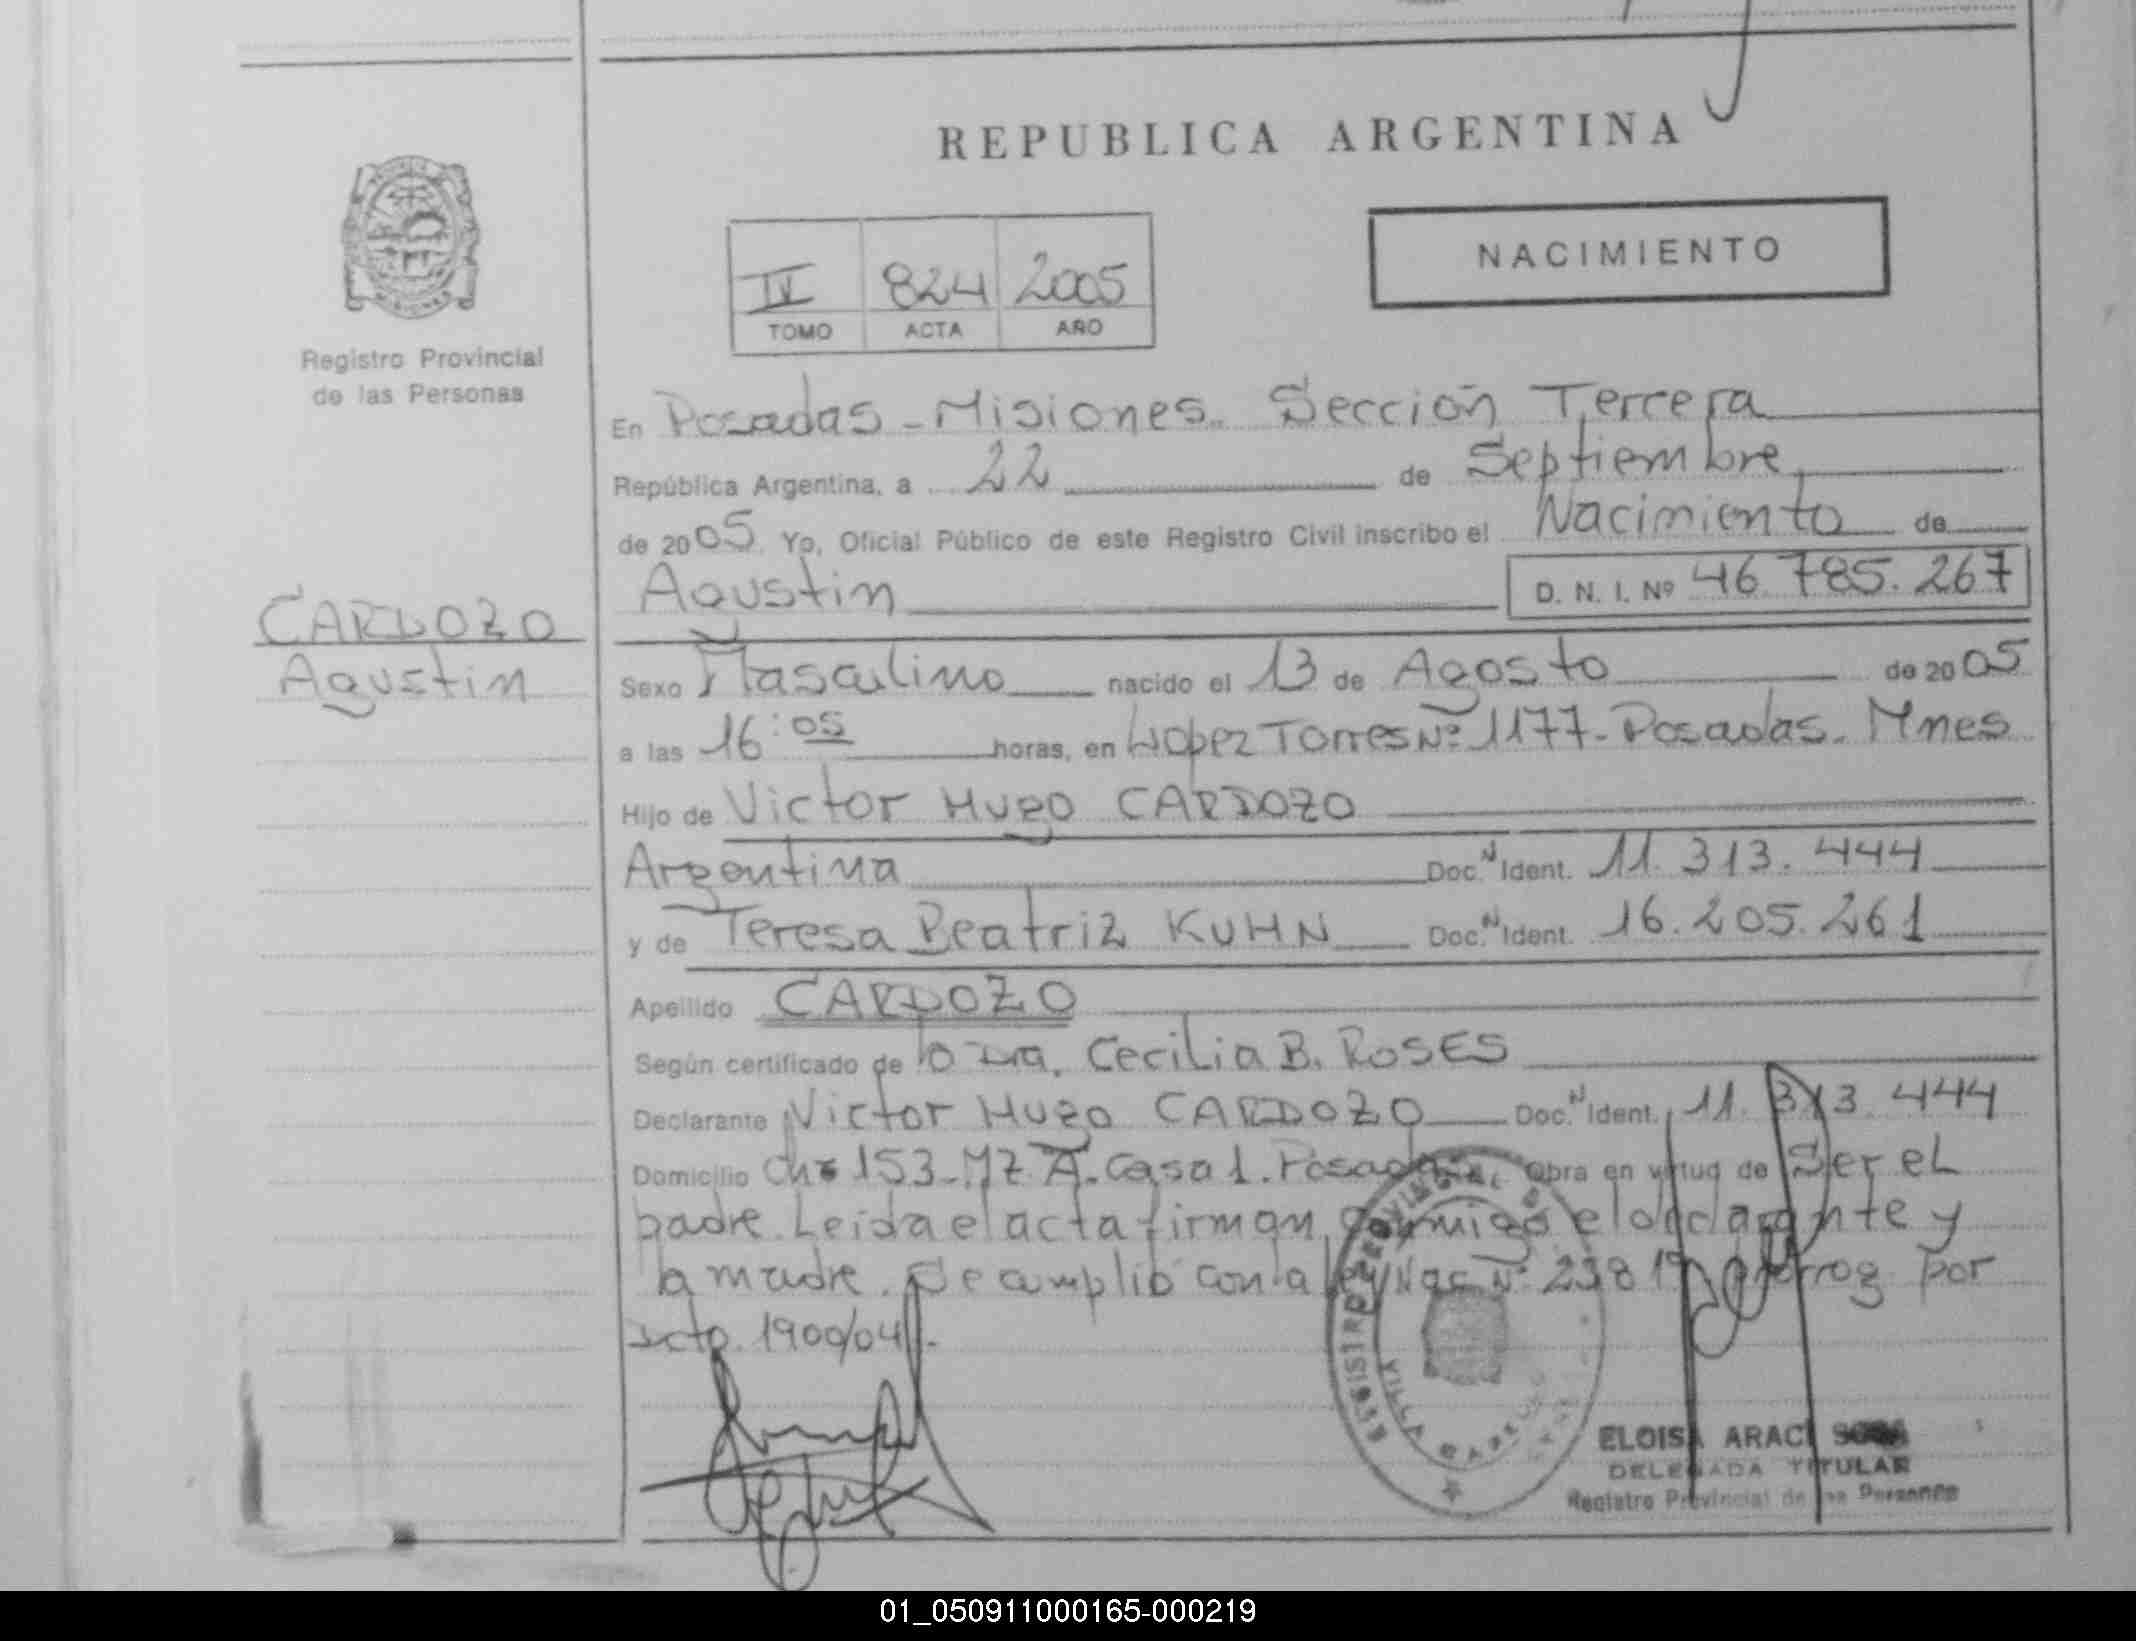 REPUBLICA ARGENTINA
NACIMIENTO
IV 824 2005
TOMO ACTA AÑO
Registro Provincial
de las Personas
CARDOZO
Agustin
En Posadas - Misiones. Sección Tercera
República Argentina, a 22 de Septiembre
de 2005. Yo, Oficial Público de este Registro Civil inscribo el Nacimiento de
Agustin D. N. I. Nº 46.785.267
Sexo Masculino nacido el 13 de Agosto de 2005
a las 16:05 horas, en López Torres Nº 1177 - Posadas - Mnes
Hijo de Victor Hugo CARDOZO
Argentina Doc. N Ident. 11.313.444
y de Teresa Beatriz KUHN Doc. N Ident. 16.205.261
Apellido CARDOZO
Según certificado de la Dra. Cecilia B. ROSES
Declarante Victor Hugo CARDOZO Doc. N Ident. 11.313.444
Domicilio 153 - MZ A - Casa 1. Posadas. Obra en virtud de Ser el
padre. Leida el acta firman conmigo el declarante y
la madre. Se cumplió con la Ley Nac Nº 23819 Prorrog por
Dcto. 1900/04.
REGISTRO PROVINCIAL DE
VILLA CABELLO
ELOISA ARACI SOSA
DELEGADA TITULAR
Registro Provincial de las Personas
01_050911000165-000219